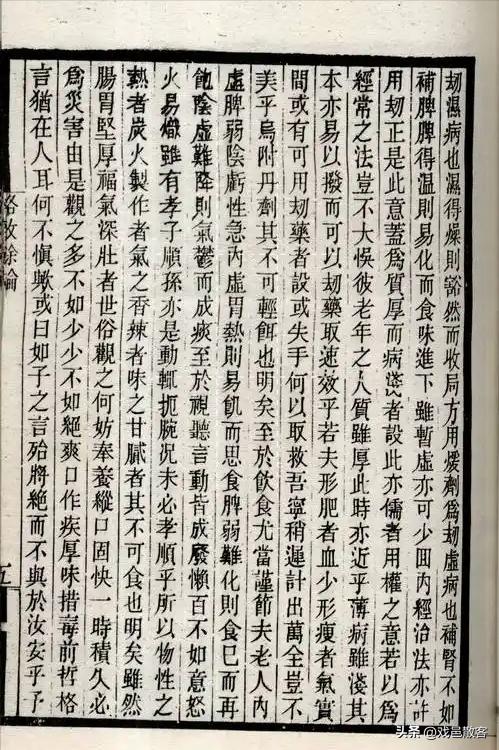 刼濕病也濕得燥則豁然而收局方用燠劑爲刼虛病也補腎不如
補脾脾得温則易化而食味進下雖暫虛亦可少囬內經治法亦許
用刼正是此意蓋爲質厚而病淺者設此亦儒者用權之意若以爲
經常之法豈不大悞彼老年之人質雖厚此時亦近乎薄病雖淺其
本亦易以撥而可以刼藥取速效乎若夫形肥者血少形瘦者氣實
間或有可用刼藥者設或失手何以取救吾寧稍遲計出萬全豈不
美乎烏附丹劑其不可輕餌也明矣至於飲食尤當謹節夫老人內
虛脾弱陰虧性急內虛胃熱則易飢而思食脾弱難化則食已而再
飽陰虛難降則氣鬱而成痰至於視聽言動皆成廢懶百不如意怒
火易熾雖有孝子順孫亦是動輒扼腕況未必孝順乎所以物性之
熱者炭火製作者氣之香辣者味之甘膩者其不可食也明矣雖然
腸胃堅厚福氣深壯者世俗觀之何妨奉養縱口固快一時積久必
爲災害由是觀之多不如少少不如絕爽口作疾厚味措毒前哲格
言猶在人耳何不慎歟或曰如子之言殆將絕而不與於汝安乎予
格致餘論
五
头条 @戏邑散客